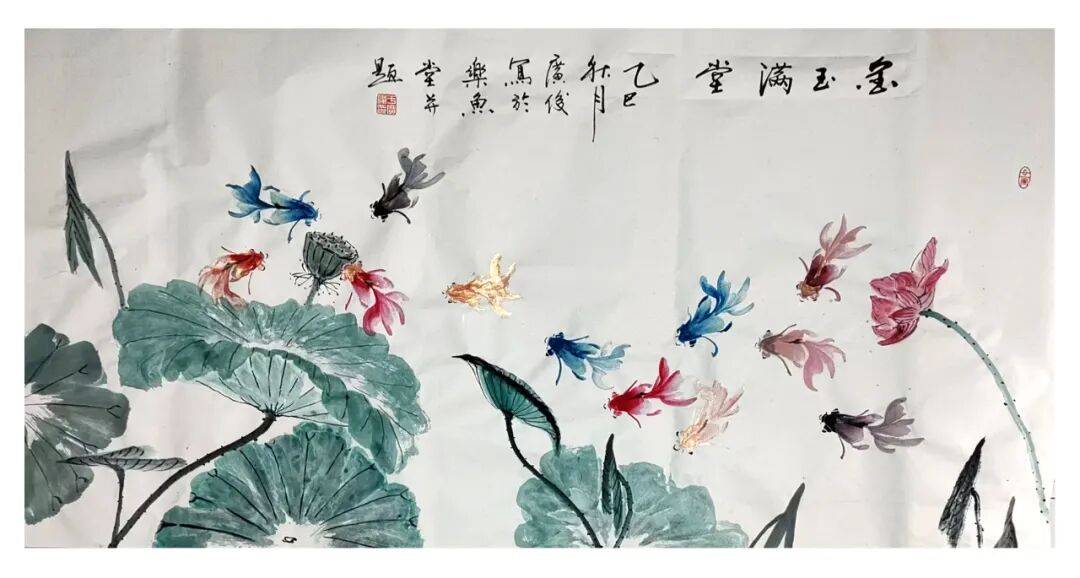 金玉滿堂
乙巳
秋月
廣俊
寫於
樂魚
堂并
題